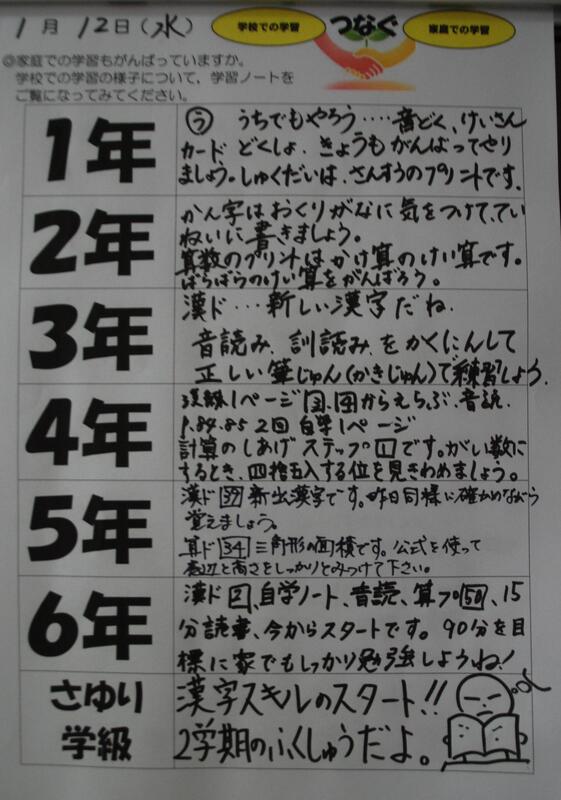 1月12日(水)
学校での学習
つなぐ
家庭での学習
◎家庭での学習もがんばっていますか。
学校での学習の様子について、学習ノートを
ご覧になってみてください。
1年
う うちでもやろう‥‥音どく、けいさん
カード どくしょ、きょうもがんばってやり
ましょう。しゅくだいは、さんすうのプリントです。
2年
かん字はおくりがなに気をつけて、てい
ねいに書きましょう。
算数のプリントはかけ算のけい算です。
ばらばらのけい算をがんばろう。
3年
漢ド‥‥新しい漢字だね。
音読み、訓読み、をかくにんして
正しい筆じゅん(かきじゅん)で練習しよう。
4年
1ページ からえらぶ、音読、
P.84.85 2回 自学1ページ
計算のしあげ ステップ1です。がい数に
するとき、四捨五入する位を見きわめましょう。
5年
漢ド 39 新出漢字です。昨日同様に確かめながら
覚えましょう。
算ド 34 三角形の面積です。公式を使って
底辺と高さをしっかりとみつけて下さい。
6年
漢ド 2、自学ノート、音読、算プ 50、15
分読書、今からスタートです。90分を目
標に家でもしっかり勉強しようね!
さゆり
学級
漢字スキルのスタート!!
2学期のふくしゅうだよ。